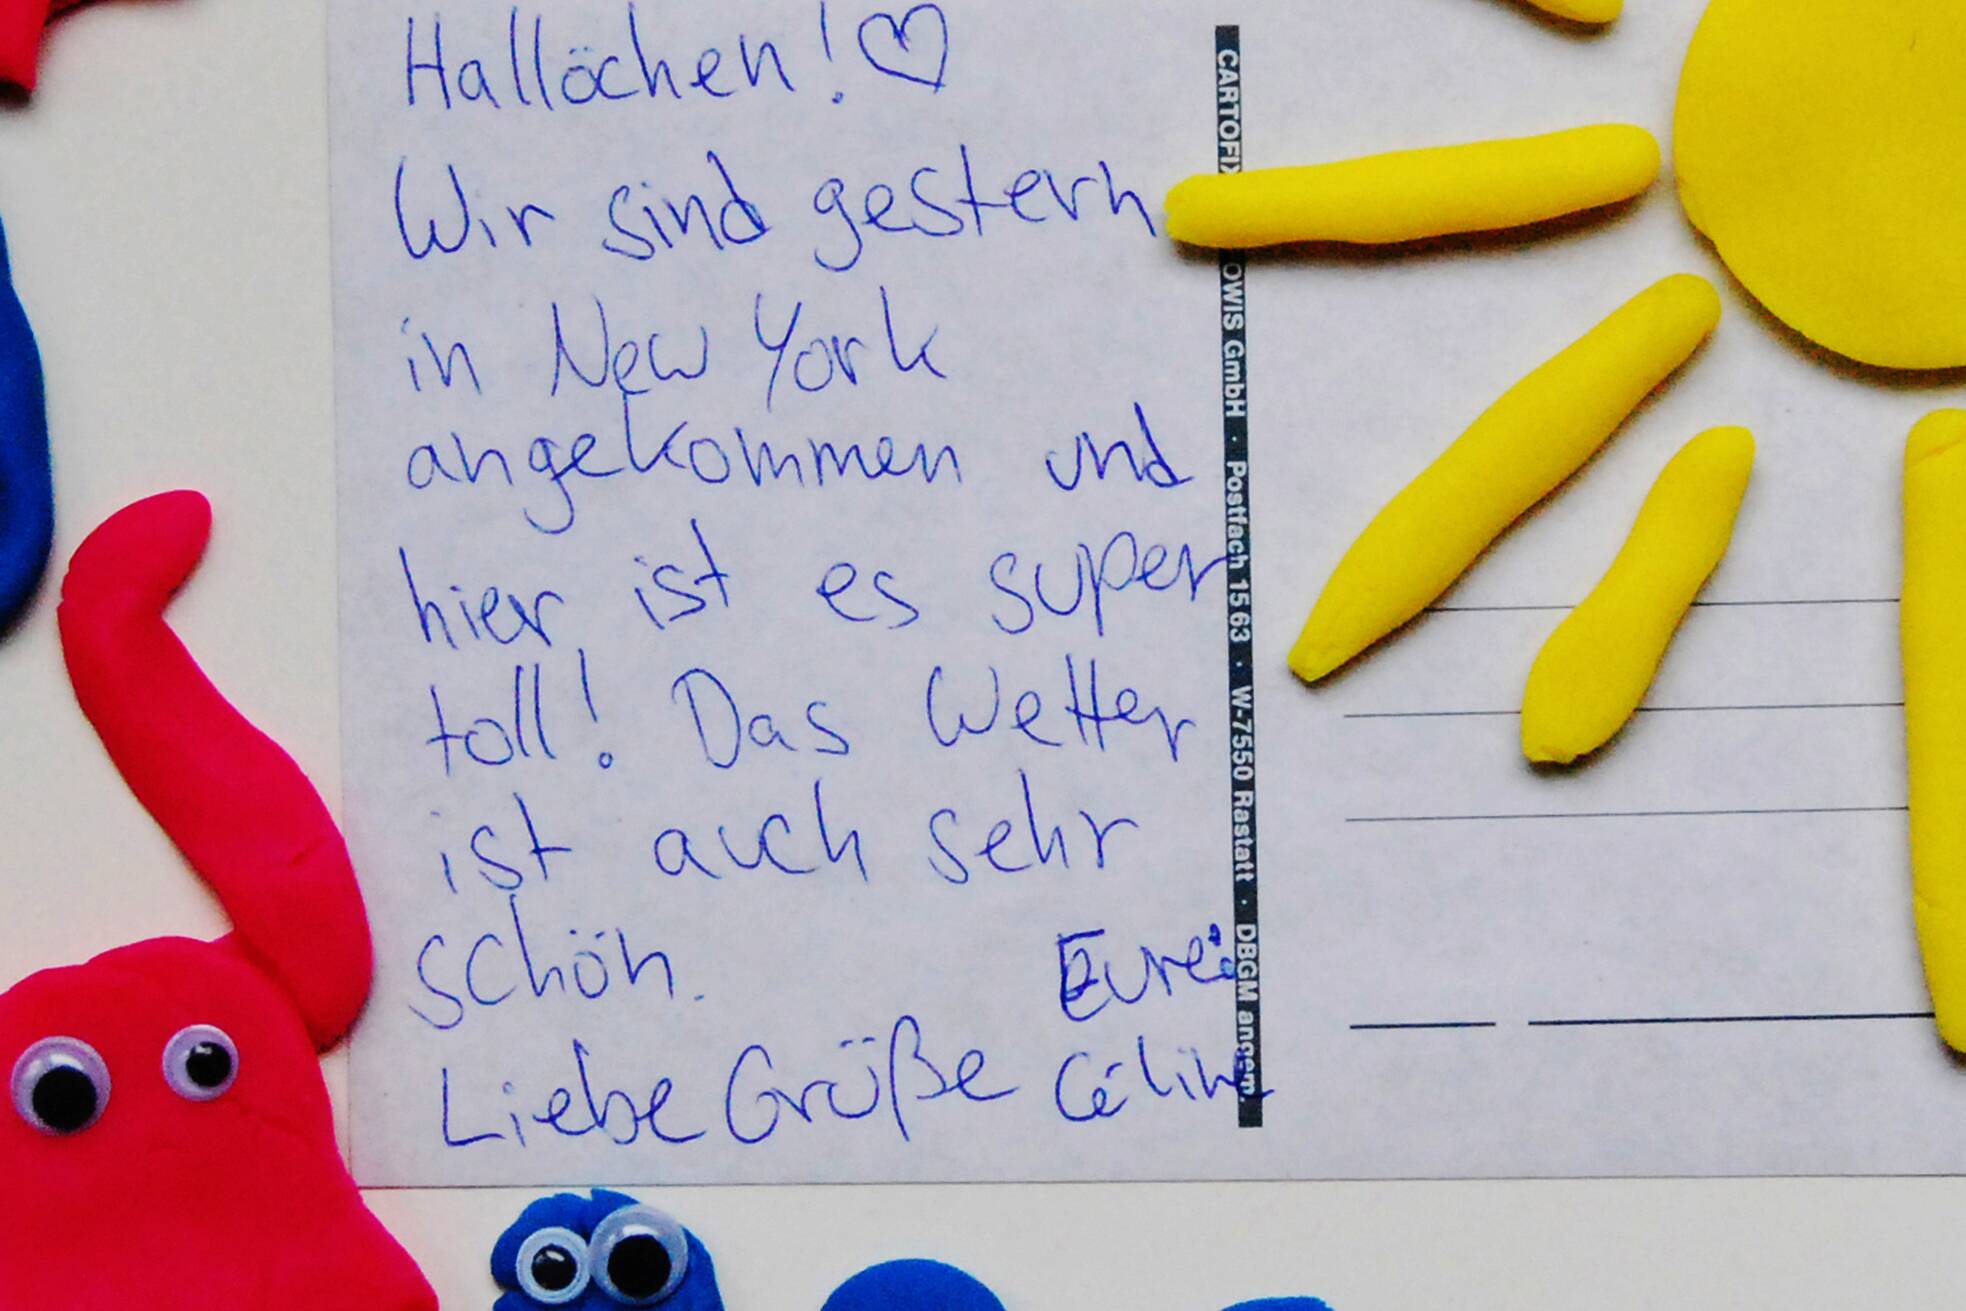 Hallöchen! ♡
Wir sind gestern
in New York
angekommen und
hier ist es super
toll! Das Wetter
ist auch sehr
schön.
Liebe Grüße
Eure
Céline
CARTOFIX OWIS GmbH · Postfach 15 63 · W-7550 Rastatt · DBGM angem.